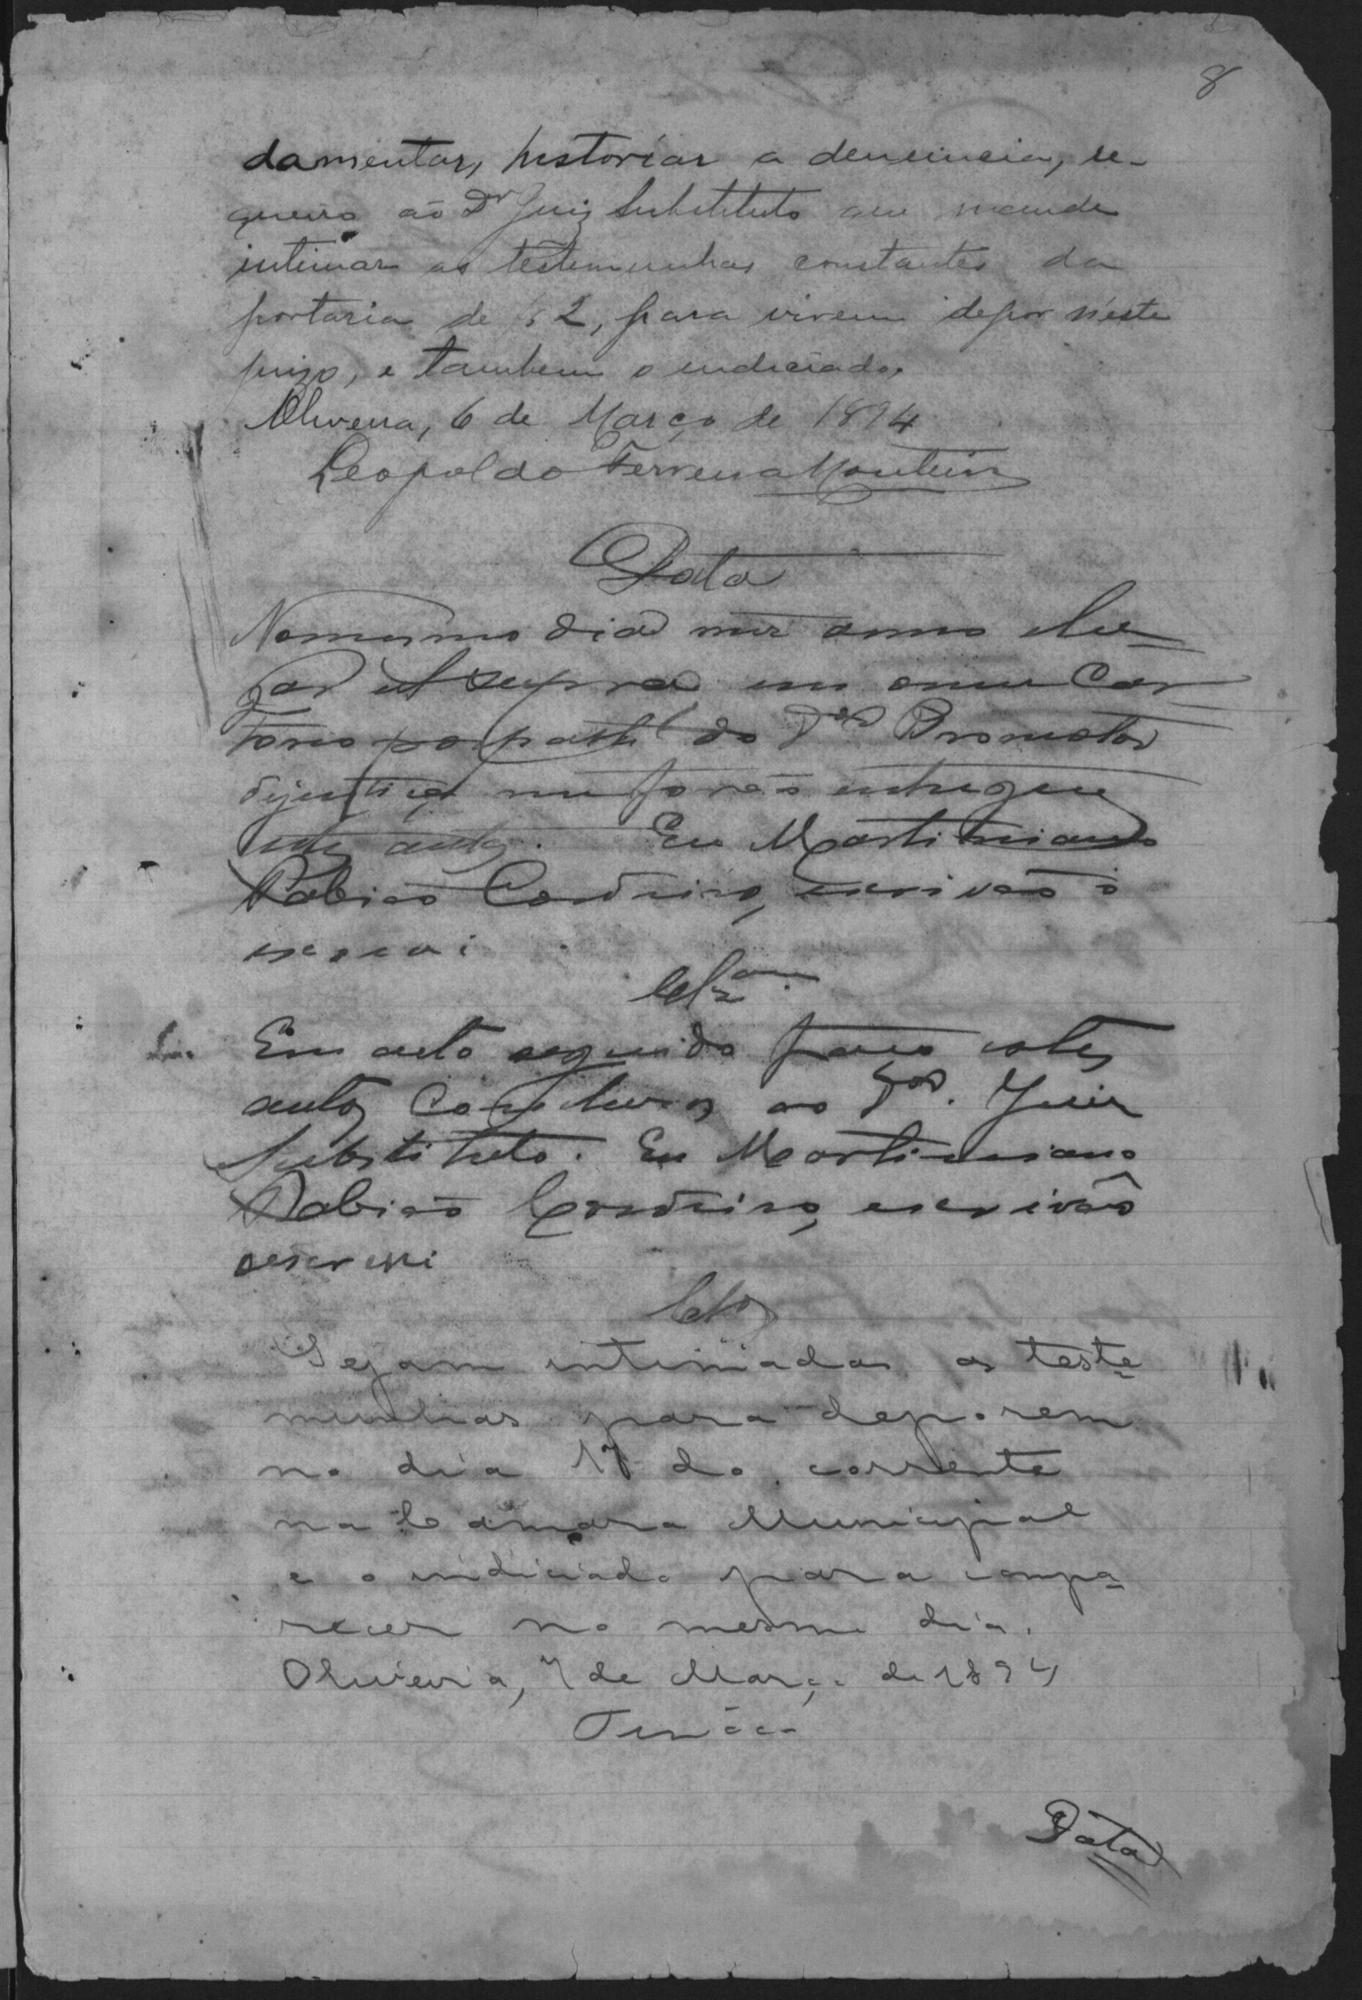 8
damentar, historiar a denuncia, re-
queiro ao Dr Juiz Substituto que mande
intimar as testemunhas constantes da
portaria de f 2, para virem depor néste
juizo, e tambem o indiciado.
Oliveira, 6 de Março de 1894
Leopoldo Ferreira Monteiro
Data
No mesmo dia mez anno e lu
gar ut supra em o meu Car
torio por parte do Dor Promotor
dejustiça me forão entregues
estes autos. Eu Martimiano
Rabiao Cordeiro, escrivão o
escrevi
Clzam.
Em acto seguido faço estes
autos Conclusos ao Dor. Juiz
Substituto. Eu Martimiano
Rabiao Cordeiro, escrivão
oescrevi
Clzos
Sejam intimadas as teste
munhas para deporem
no dia 17 do corrente
na Camara Municipal
e o indiciado para compa
recer no mesmo dia.
Oliveira, 7 de Março de 1894
Data